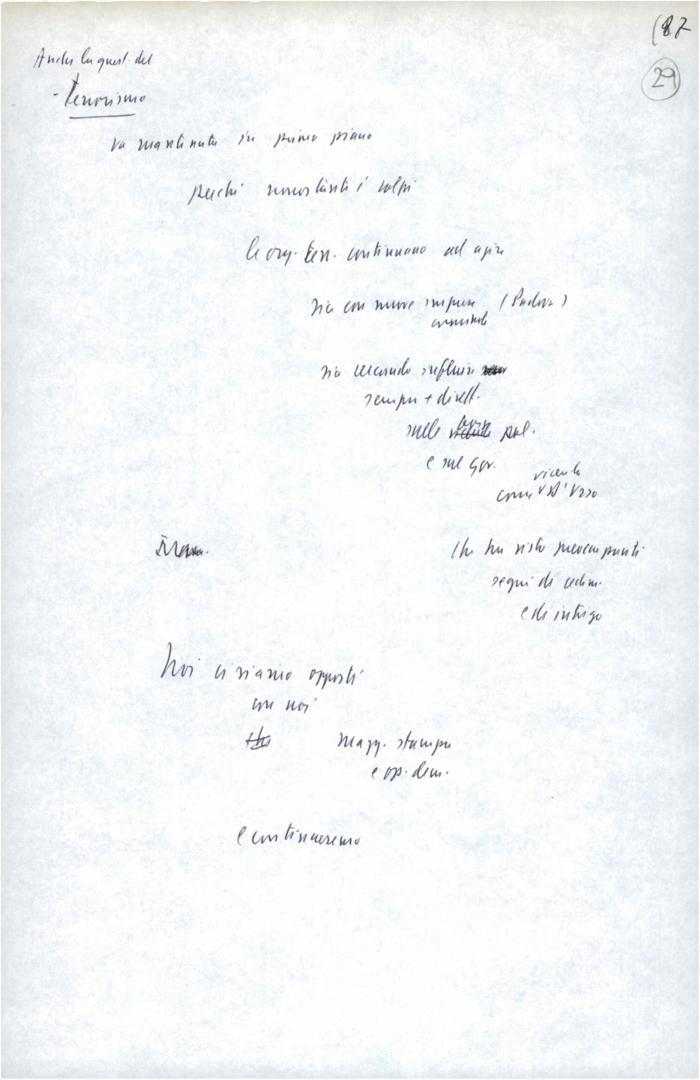 (87
29
Anche la quest. del
- terrorismo
va mantenuta in primo piano
perché nonostante i colpi
le org. terr. continuano ad agire
sia con nuove imprese (Padova)
criminali
sia cercando influire
sempre + dirett.
sulle pol.
e sul gov.
vicenda
come D'Urso
che ha visto preoccupanti
segni di cedim.
e di intrigo
Noi ci siamo opposti
con noi
magg. stampa
e op. dem.
e continueremo